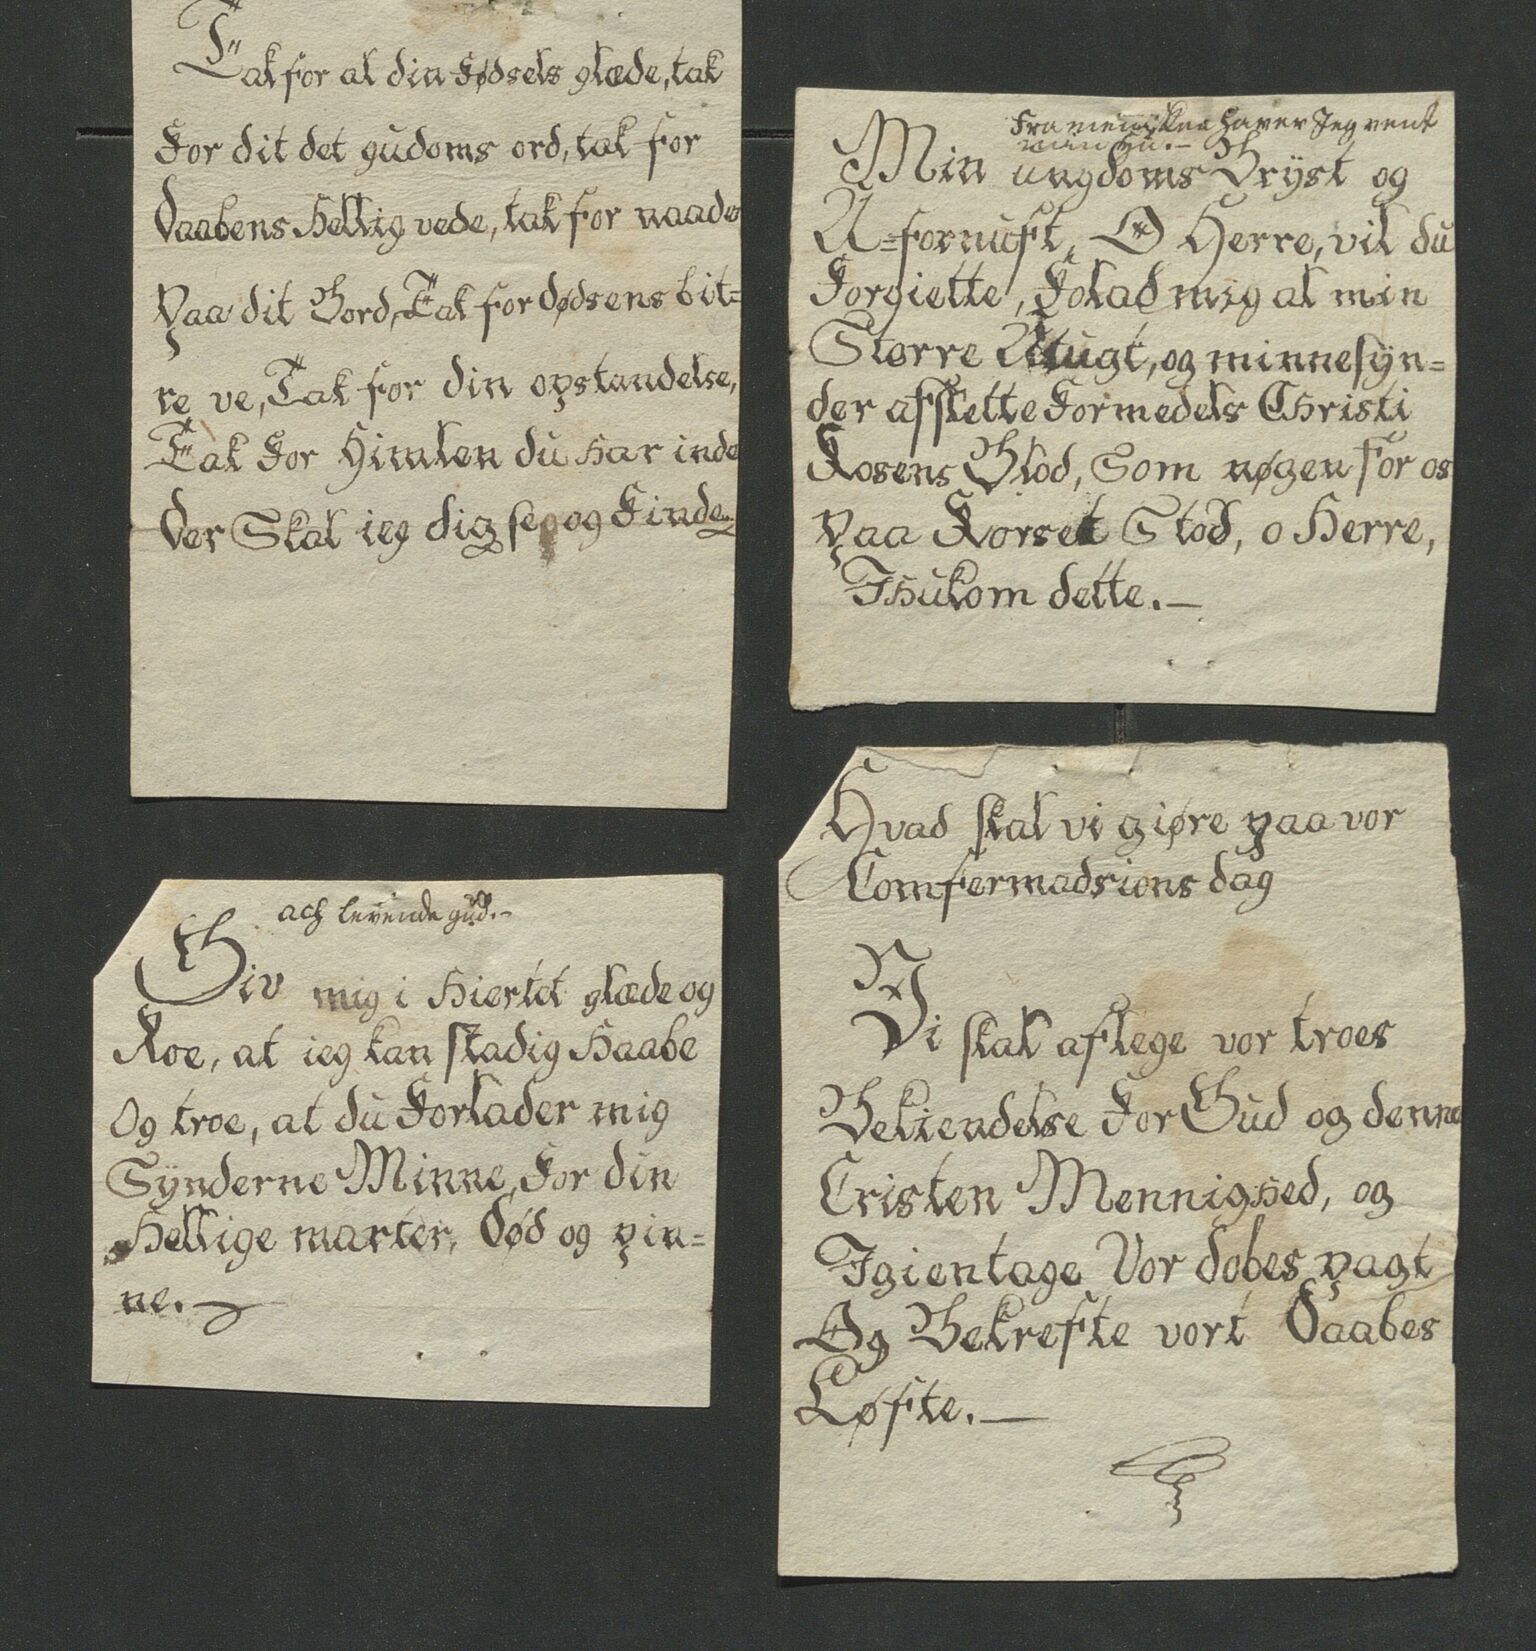 Tak for al din Fødsels glæde, tak
For dit det gudoms ord, tak for
Daabens Hellig vede, tak for naade
Paa dit Bord, Tak for dødsens bit=
re ve, Tak for din opstandelse,
Tak For Himlen du har inde
Der Skal ieg dig se og Finde.
Fra menisker haver Jeg vent
Min ungdoms Bryst og
U=fornuft, O Herre, vil du
Forgiette, Folad mig al min
Storre Utugt, og minne syn=
der afslette Formedels Christi
Rosens Blod, Som nøgen For os
paa Korset Stod, o Herre,
Ihukom dette.—
ach levende gud.—
Giv mig i Hiertet glæde og
Roe, at ieg kan stadig Haabe
Og troe, at du Forlader mig
Synderne Minne, For din
Hellige marter, Død og pin=
ne.—
Hvad skal vi giøre paa vor
Comfermadsions dag
Vi skal aflege vor troes
Bekiendelse For Gud og denne
Cristen Mennighed, og
Igientage Vor dobes pagt
Og Bekrefte vort Daabes
Løfte.—